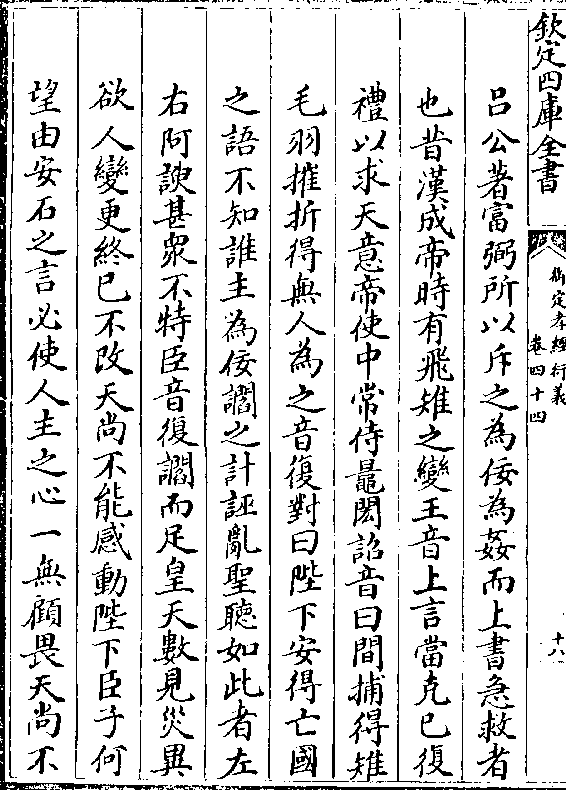 欽定四庫全書
御定孝經衍義
卷四十四
十八
呂公著富弼所以斥之為佞為姦而上書急救者
也昔漢成帝時有飛雉之變王音上言當克已復
禮以求天意帝使中常侍鼂閎詔音曰間捕得雉
毛羽摧折得無人為之音復對曰陛下安得亡國
之語不知誰主為佞讇之計誣亂聖聽如此者左
右阿諛甚衆不特臣音復讇而足皇天數見災異
欲人變更終已不改天尚不能感動陛下臣子何
望由安石之言必使人主之心一無顧畏天尚不